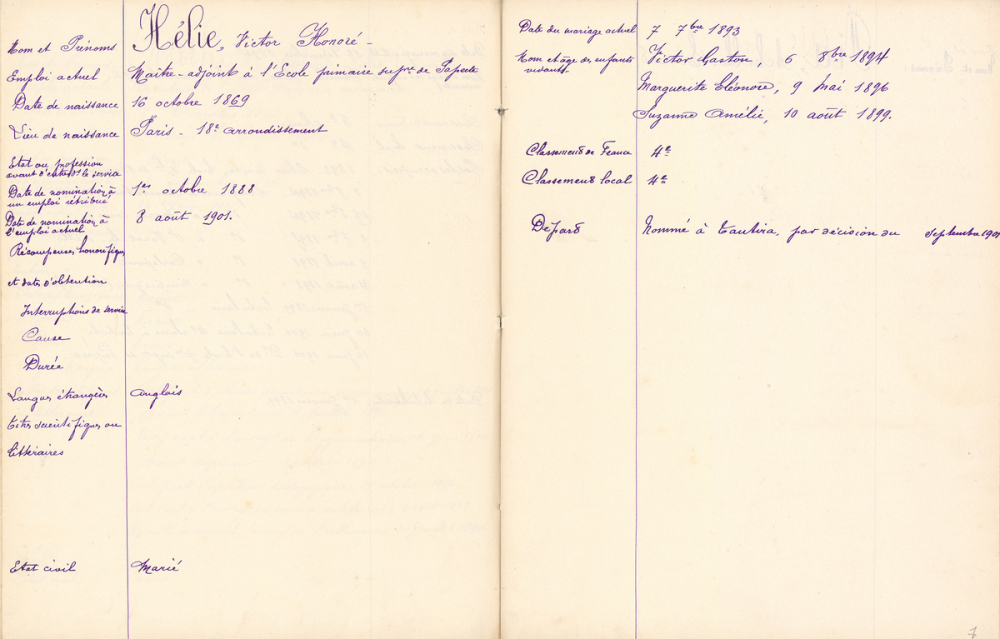 Nom et Prénoms Hélie, Victor Honoré -
Emploi actuel Maître-adjoint à l'Ecole primaire supre de Papeete
Date de naissance 16 octobre 1869
Lieu de naissance Paris - 18e arrondissement
Etat ou profession
avant d'entrer ds le service
Date de nomination à
un emploi rétribué 1er octobre 1888
Date de nomination à
l'emploi actuel 8 août 1901.
Récompenses honorifiques
et dates d'obtention
Interruptions de service
Cause
Durée
Langues étrangères anglais
titres scientifiques ou
littéraires
Etat civil Marié
Date du mariage actuel 7 7bre 1893
Nom et âge des enfants
vivants. Victor Gaston, 6 8bre 1894
Marguerite Eléonore, 9 Mai 1896
Suzanne Amélie, 10 août 1899.
Classement de France 4e
Classement local 4e
Départ Nommé à Tautira, par décision du septembre
7